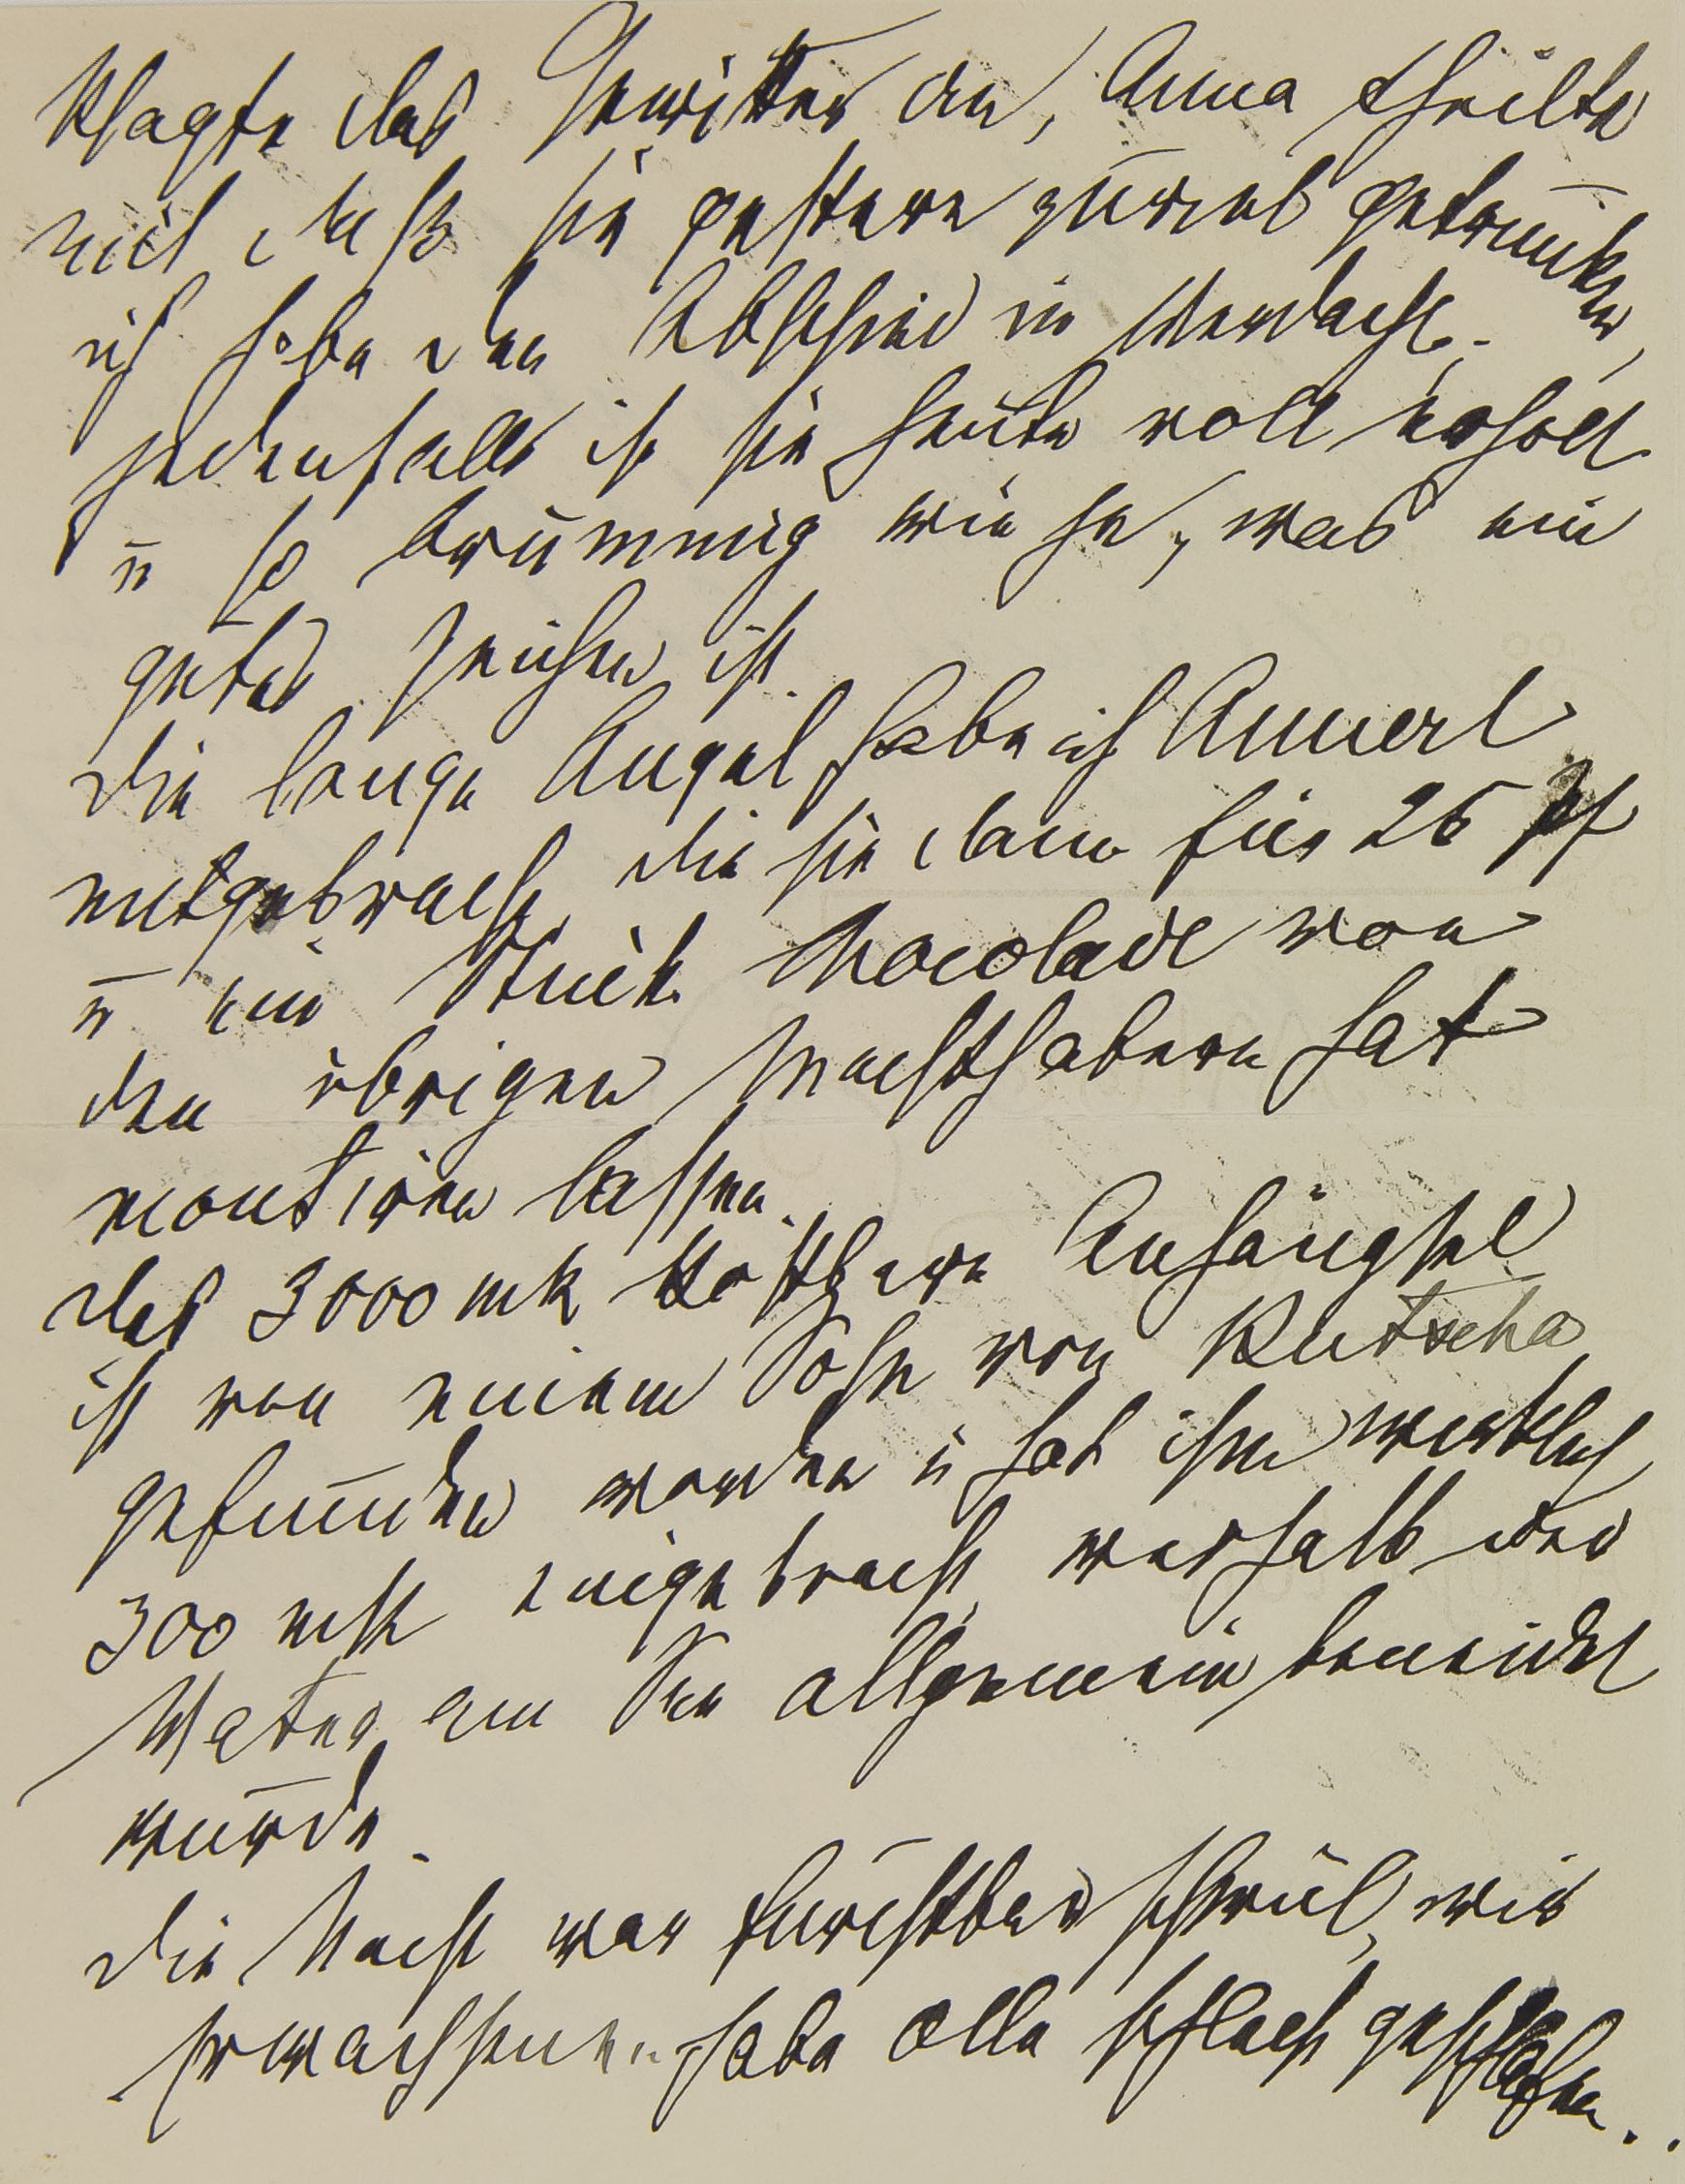 klagte das Gewitter an, Anna theilte
mit daß sie gestern zuviel getrunken,
ich habe den Abschied in Verdacht,
jedenfalls ist sie heute voll erholt
u so brummig wie je, was ein
gutes Zeichen ist.
Die lange Angel habe ich Annerl
mitgebracht, die sie dann für 25 pf
u ein Stück Chocolade von
den übrigen Machthabern hat
montiren lassen.
das 3000 mk kostbare Anhängsel
ist von einem Sohn von Kutscha
gefunden worden u hat ihm wirklich
300 mk eingebracht, weshalb der
Vater am See allgemein beneidet
wurde.
Die Nacht war furchtbar schwül, wir
Erwachsenen habe alle schlecht geschlafen..